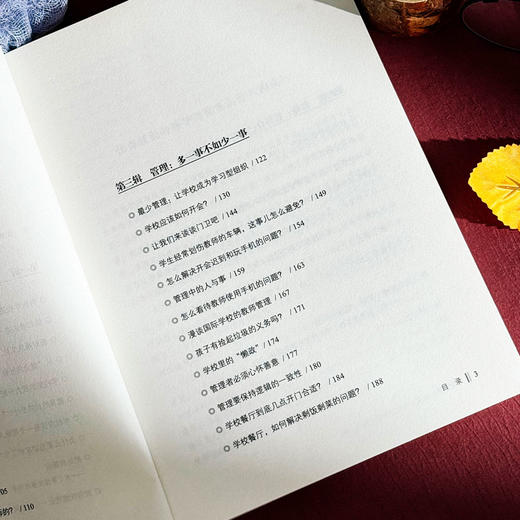 第二辑 管理：多一事不如少一事
◎ 最少管理：让学校成为学习型组织 / 122
◎ 学校应该如何开会？ / 130
◎ 让我们来谈谈门卫吧 / 144
◎ 学生经常划伤教师的车辆，这事儿怎么避免？ / 149
◎ 怎么解决开会迟到和玩手机的问题？ / 154
◎ 管理中的人与事 / 159
◎ 怎么看待教师使用手机的问题？ / 163
◎ 漫谈国际学校的教师管理 / 167
◎ 孩子有捡起垃圾的义务吗？ / 171
◎ 学校里的“懒政” / 174
◎ 管理者必须心怀善意 / 177
◎ 管理要保持逻辑的一致性 / 180
◎ 学校餐厅到底几点开门合适？ / 184
◎ 学校餐厅，如何解决剩饭剩菜的问题？ / 188
目 录 3
/05
的？ / 110